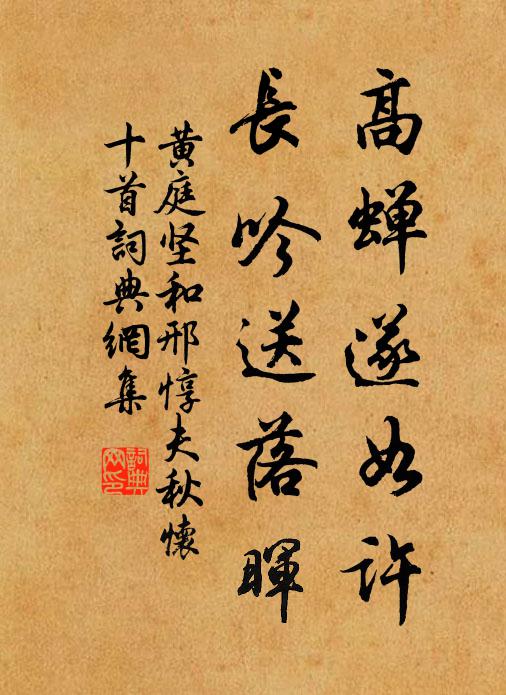 高蝉遂如许
長吟送落暉
黄庭坚和邢惇夫秋懷
十首詞典網集
詞典網印